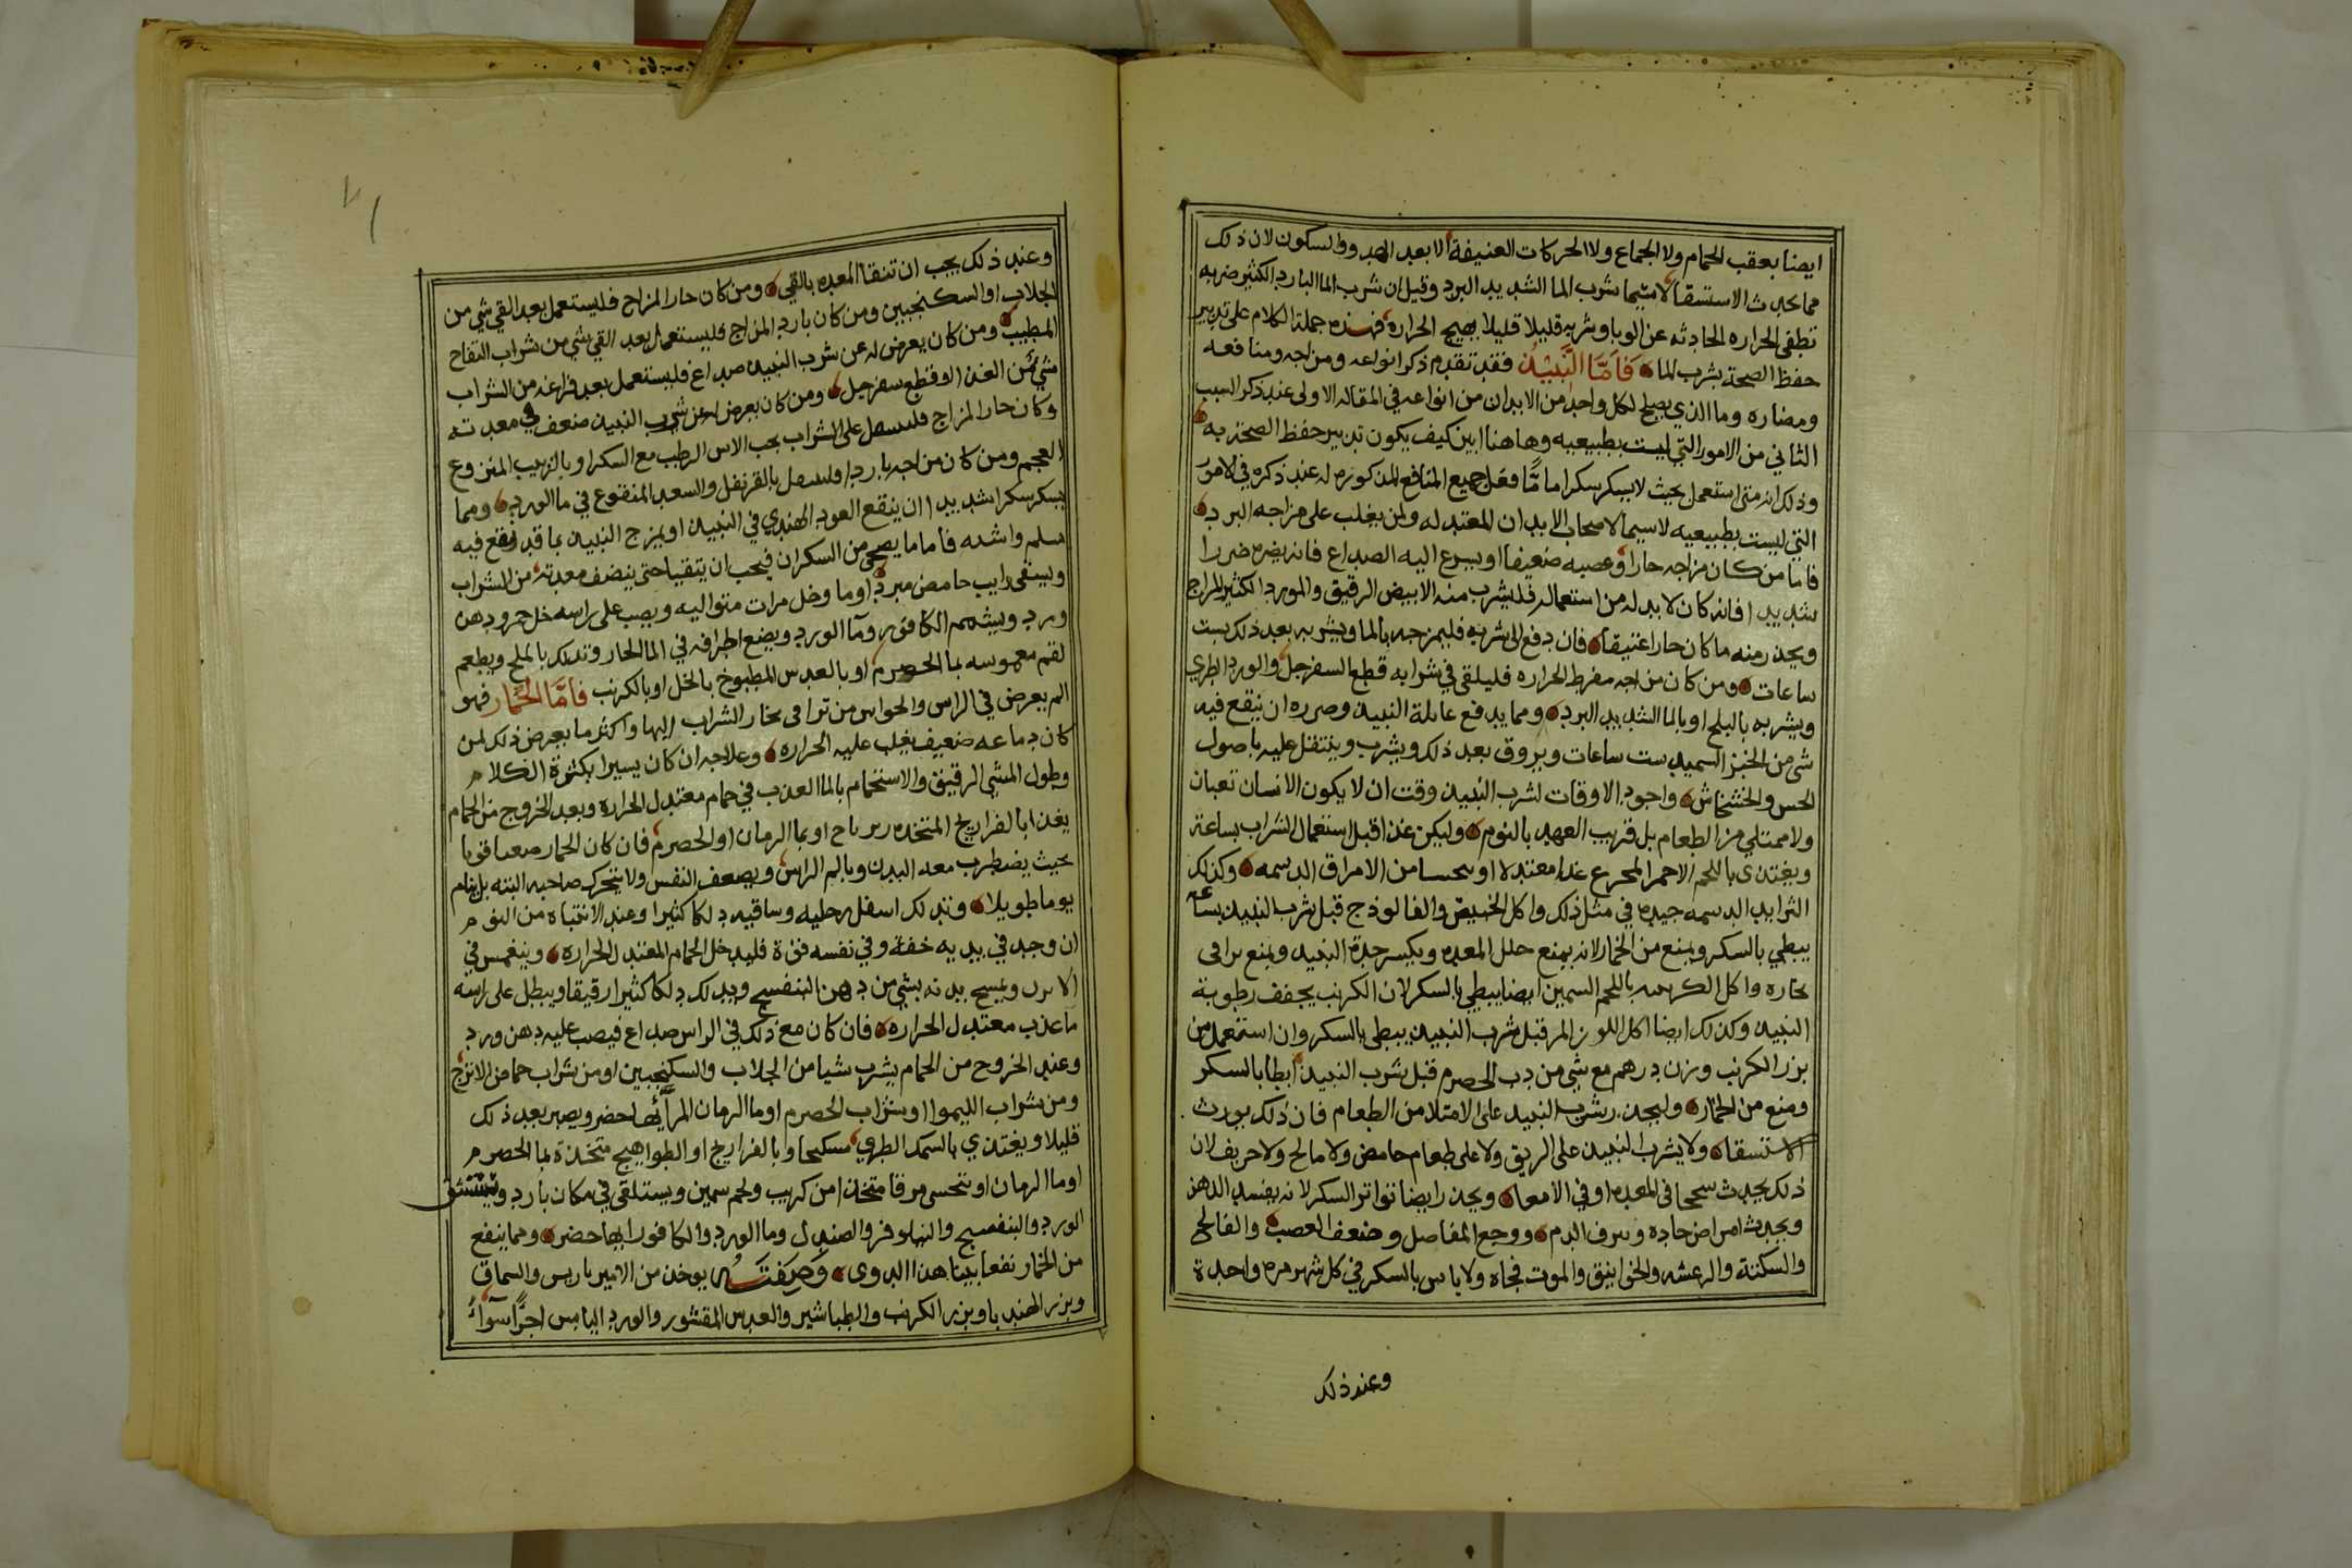 ايضا بعقب الحمام ولا الجماع ولا الحركات العنيفة الا بعد الهدو والسكون لان ذلك
مما يحدث الاستسقا لا سيما شرب الما الشديد البرد وقيل ان شرب الما البارد الكثير ضربه
تطفى الحراره الحادثه عن الوبا وشربه قليلا قليلا يهيج الحراره فهذه جملة الكلام على تدبير
حفظ الصحة بشرب الما فَاَمَّا النَّبيْذ فقد تقدم ذكر انواعه ومزاجه ومنافعه
ومضاره وما الذي يصلح لكل واحد من الابدان من انواعه في المقاله الاولى عند ذكر السبب
الثاني من الامور التي ليست بطبيعيه وهاهنا ابين كيف يكون تدبير حفظ الصحة به
وذلك انه متى استعمل بحيث لا يسكر سكرا ما مّا فعَل جميع المنافع المذكوره له عند ذكره في الامور
التي ليست بطبيعيه لاسيما لاصحاب الابدان المعتدله ولمن يغلب على مزاجه البرد
فاما من كان مزاجه حارا وعصبه ضعيفا او يسرع اليه الصداع فانه يضره ضررا
شديدا فانه كان لابد له من استعماله فليشرب منه الابيض الرقيق والمورد الكثير المزاج
ويحذر منه ما كان حارا عتيقا فان دفع الى شربه فليمزجه بالما ويشربه بعد ذلك بست
ساعات ومن كان مزاجه مفرط الحراره فليلقى في شرابه قطع السفرجل والورد الطري
ويشربه بالبلح او بالما الشديد البرد ومما يدفع عايلة النبيذ وضرره ان ينقع فيه
شي من الخبز السميد ست ساعات ويروق بعد ذلك ويشرب وينتقل عليه باصول
الخس والخشخاش واجود الاوقات لشرب النبيذ وقت ان لا يكون الانسان تعبان
ولا ممتلي من الطعام بل قريب العهد بالنوم وليكن غذا قبل استعمال الشراب بساعة
ويغتذى باللحم الاحمر المجزع غذا معتدلا او يتحسا من الامراق الدسمه وكذلك
الثرايد الدسمه جيده في مثل ذلك واكل الخبيص والفالوذج قبل شرب النبيذ بساعه
يبطي بالسكر ويمنع من الخمار لانه يمنع خلل المعده ويكسر حدة النبيذ ويمنع تراقى
بخاره واكل الكرنبيه باللحم السمين ايضا يبطي بالسكر لان الكرنب يجفف رطوبة
النبيذ وكذلك ايضا اكل اللوز المر قبل شرب النبيذ يبطى بالسكر وان استعمل من
بزر الكرنب وزن درهم مع شي من رب الحصرم قبل شرب النبيذ ابطا بالسكر
ومنع من الخمار وليحذر شرب النبيذ على الامتلا من الطعام فان ذلك يورث
الاستسقا ولا يشرب النبيذ على الريق ولا على طعام حامض ولا مالح ولا حريف لان
ذلك يحدث سحجا في المعده او في الامعا ويحذر ايضا تواتر السكر لانه يفسد الذهن
ويحدث امراض حاده ونزف الدم ووجع المفاصل وضعف العصب والفالج
والسكتة والرعشه والخوانيق والموت فجاه ولا باس بالسكر في كل شهر مره واحدة
وعند ذلك
وعند ذلك يجب ان تنقا المعده بالقي ومن كان حار المزاج فليستعمل بعد القي شي من
الجلاب او السكنجبين ومن كان بارد المزاج فليستعمل بعد القي شي من شراب التفاح
المطيب ومن كان يعرض له عن شرب النبيذ صداع فليستعمل بعد فراغه من الشراب
شي من الغذا او قطع سفرجل ومن كان يعرض له عن شرب النبيذ ضعف في معدته
وكان حار المزاج فلينتقل على الشراب بحب الاس الرطب مع السكر او بالزبيب المنزوع
العجم ومن كان مزاجه باردا فلينتقل بالقرنفل والسعد المنقوع في ما الورد ومما
يسكر سكرا شديدا ان ينقع العود الهندي في النبيذ او يمزج النبيذ بما قد نقع فيه
سلم واشنه فأما ما يصحي من السكران فيجب ان يتقيا حتى ينضف معدته من الشراب
ويسقى رايب حامض مبرد او ما وخل مرات متواليه ويصب على راسه خل خمر ودهن
ورد ويشممه الكافور وما الورد ويضع اطرافه في الما الحار وتدلك بالملح ويطعم
لقم مغموسه بما الحصرم او بالعدس المطبوخ بالخل او بالكرنب فَأمَّا الخُمَار فهو
الم يعرض في الراس والحواس من تراقى بخار الشراب اليها واكثر ما يعرض ذلك لمن
كان دماغه ضعيف يغلب عليه الحراره وعلاجه ان كان يسيرا بكثرة الكلام
وطول المشي الرقيق والاستحمام بالما العذب في حمام معتدل الحراره وبعد الخروج من الحمام
يغذا بالفراريج المتخذه زيرباج او بما الرمان او الحصرم فان كان الخمار صعبا قويا
بحيث يضطرب معه البدن ويالم الراس ويضعف النفس ولا يتحرك صاحبه البته بل ينام
يوما طويلا وتدلك اسفل رجليه وساقيه دلكا كثيرا وعند الانتباه من النوم
ان وجد في بدنه خفة وفي نفسه قوة فليدخل الحمام المعتدل الحراره وينغمس في
الابزن ويمسح بدنه بشي من دهن البنفسج ويدلك دلكا كثيرا رقيقا ويبطل على راسه
ما عذب معتدل الحراره فان كان مع ذلك في الراس صداع فيصب عليه دهن ورد
وعند الخروج من الحمام يشرب شيا من الجلاب والسكنجبين او من شراب حماض الاترج
ومن شراب الليموا او شراب الحصرم او ما الرمان المر أيها حضر ويصبر بعد ذلك
قليلا ويغتذي بالسمك الطري مسكبجا وبالفراريج او الطواهيج متخذة بما الحصرم
او ما الرمان او يتحسى مرقا متخذا من كرنب ولحم سمين ويستلقي في مكان بارد ويستنشق
الورد والبنفسج والنيلوفر والصندل وما الورد والكافور ايها حضر ومما ينفع
من الخمار نفعا بينا هذا الدوى وَصِفَتُـه يوخذ من الامير باريس والسماق
وبزر الهندبا وبزر الكرنب والطباشير والعدس المقشور والورد اليابس اجزا سوآء